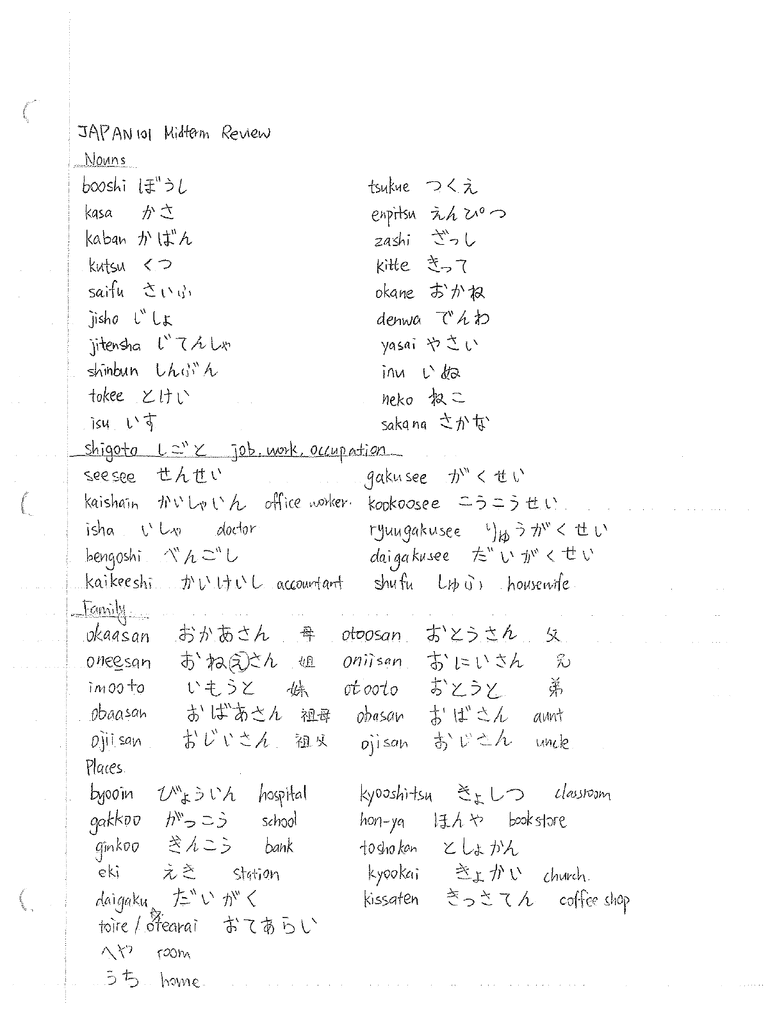 JAPAN 101 Midterm Review
Nouns
booshi ぼうし tsukue つくえ
kasa かさ enpitsu えんぴつ
kaban かばん zashi ざっし
kutsu くつ kitte きって
saifu さいふ okane おかね
jisho じしょ denwa でんわ
jitensha じてんしゃ yasai やさい
shinbun しんぶん inu いぬ
tokee とけい neko ねこ
isu いす sakana さかな
shigoto しごと job, work, occupation
seesee せんせい gakusee がくせい
kaishain かいしゃいん office worker. kookoosee こうこうせい
isha いしゃ doctor ryuugakusee りゅうがくせい
bengoshi べんごし daigakusee だいがくせい
kaikeeshi かいけいし accountant shufu しゅふ housewife
Family
okaasan おかあさん 母 otoosan おとうさん 父
oneesan おねえさん 姐 oniisan おにいさん 兄
imooto いもうと 妹 otooto おとうと 弟
obaasan おばあさん 祖母 obasan おばさん aunt
ojiisan おじいさん 祖父 ojisan おじさん uncle
Places
byooin びょういん hospital kyooshitsu きょしつ classroom
gakkoo がっこう school hon-ya ほんや bookstore
ginkoo ぎんこう bank toshokan としょかん
eki えき station kyookai きょかい church.
daigaku だいがく kissaten きっさてん coffee shop
toire / otearai おてあらい
へや room
うち home